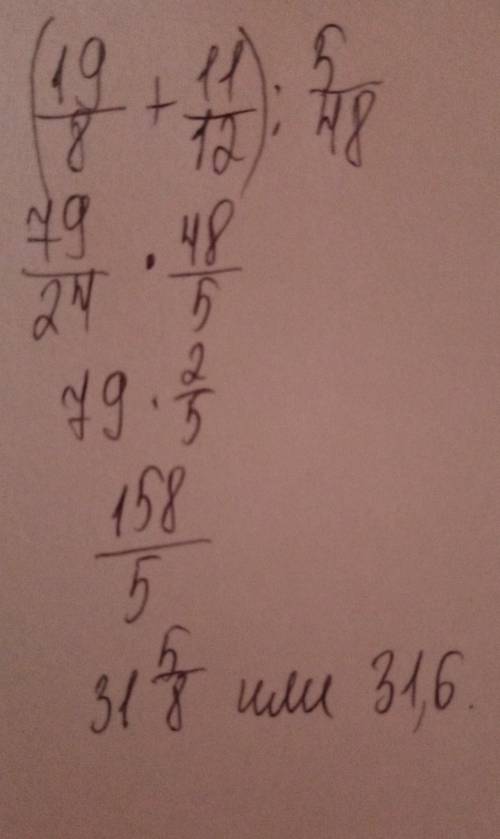 (19/8 + 11/12) : 5/48
79/24 · 48/5
79 · 2/5
158/5
31 5/8 или 31,6.